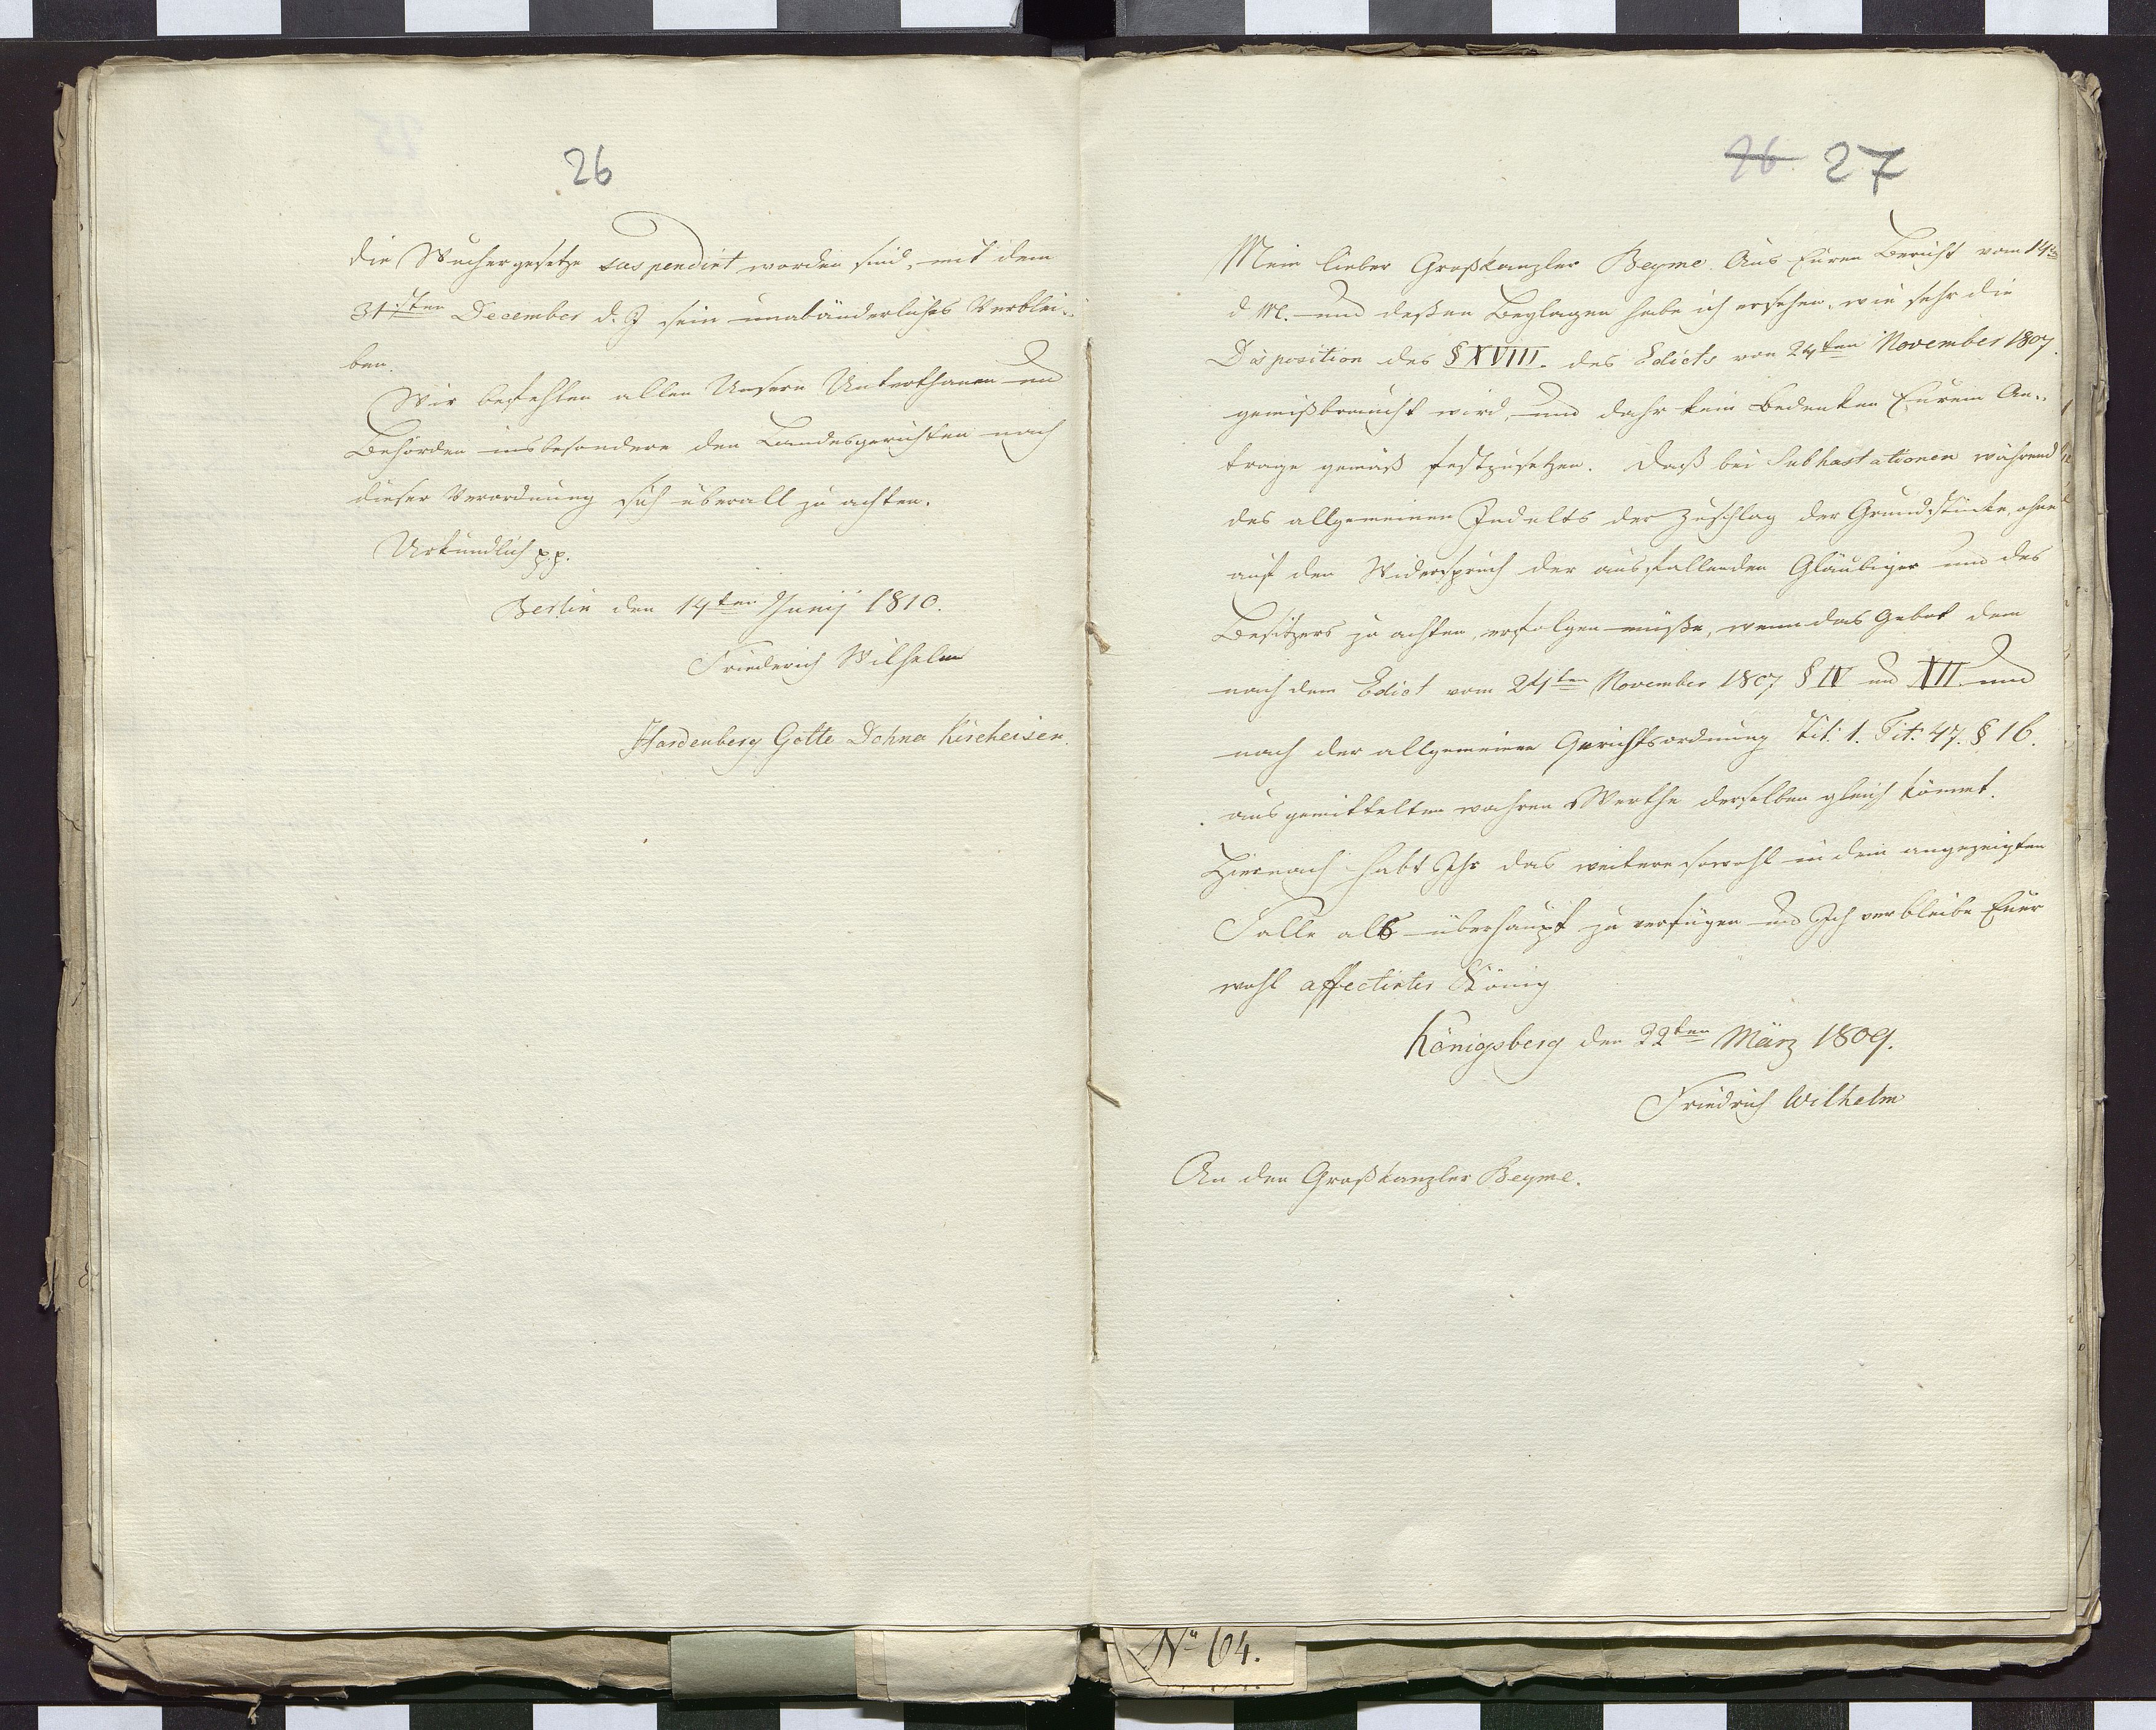 26
die Wuchergesetze suspendirt worden sind, mit dem
31sten December d. J sein unabänderliches Verblei-
ben.
Wir befehlen allen Unsern Unterthanen und
Behörden insbesondere den Landesgerichten nach
dieser Verordnung sich überall zu achten.
Urkundlich p.p.
Berlin den 14ten Junij 1810.
Friederich Wilhelm
Hardenberg Goltz Dohna Kircheisen.
26 27
Mein lieber Großkanzler Beyme. Aus Euren Bericht vom 14ten
d M. und deßen Beylagen habe ich ersehen, wie sehr die
Disposition des § XVIII. des Edicts von 24ten November 1807.
gemißbraucht wird, und dahr kein Bedenken Eurem An-
trage gemäß festzusetzen. daß bei Subhastationen während
des allgemeinen Indults der Zuschlag der Grundstücke, ohne
auf den Widerspruch der ausfallenden Gläubiger und des
Besitzers zu achten, erfolgen müße, wenn das Gebot dem
nach dem Edict vom 24ten November 1807 § IV und XII. und
nach der allgemeinen Gerichtsordnung Til: 1. Tit: 47. § 16.
ausgemittelten wahren Werthe derselben gleich kömmt.
Hiernach habt Ihr das weitere sowohl in dem angezeigten
Falle als überhaupt zu verfügen und Ich verbleibe Euer
wohl affectirter König
Königsberg den 22ten März 1809.
Friedrich Wilhelm
An den Großkanzler Beyme.
No 64.